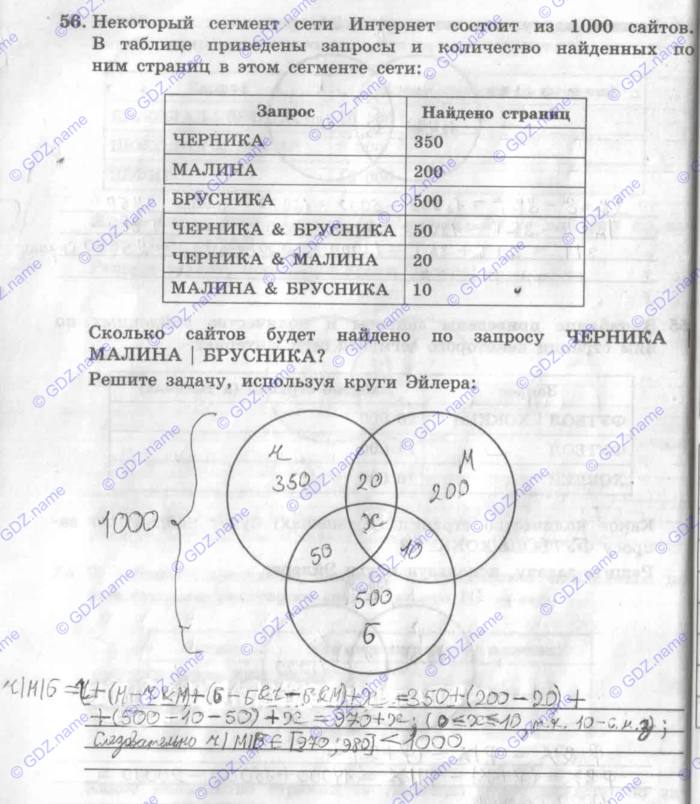 56. Некоторый сегмент сети Интернет состоит из 1000 сайтов.
В таблице приведены запросы и количество найденных по
ним страниц в этом сегменте сети:
Запрос Найдено страниц
ЧЕРНИКА 350
МАЛИНА 200
БРУСНИКА 500
ЧЕРНИКА & БРУСНИКА 50
ЧЕРНИКА & МАЛИНА 20
МАЛИНА & БРУСНИКА 10
Сколько сайтов будет найдено по запросу ЧЕРНИКА
МАЛИНА | БРУСНИКА?
Решите задачу, используя круги Эйлера:
ч М
350 20 200
1000 x
50 10
500
Б
ч|М|Б = Ч+(М-Ч&М)+(Б-Б&Ч-Б&М)+x = 350+(200-20)+
+(500-10-50)+x = 970+x; (0≤x≤10, т.к. 10-
Следовательно ч|М|Б ∈ [970; 980] < 1000
© GDZ.name